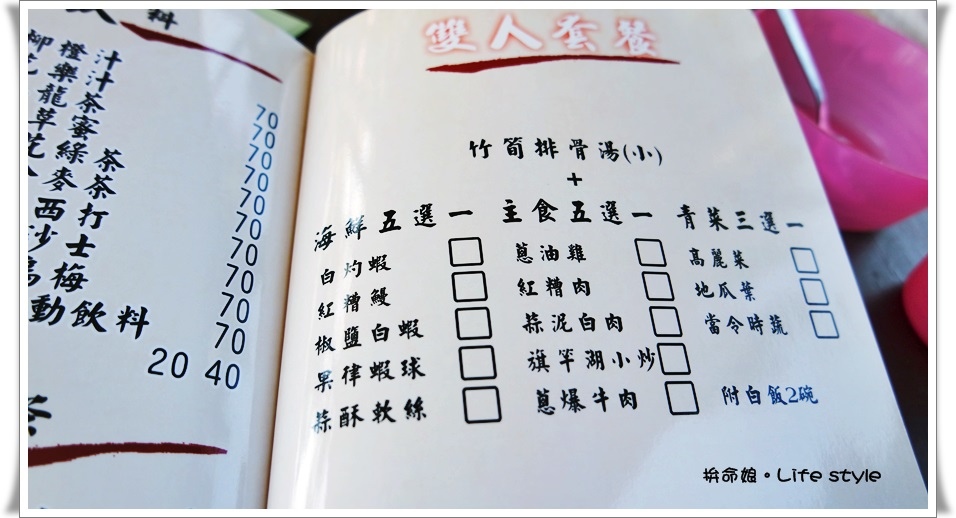 料
柳橙汁
樂汁 70
龍茶 70
草蜜 70
花綠茶 70
麥茶 70
西打 70
沙士 70
烏梅 70
動飲料 70
20 40
茶
雙人套餐
竹筍排骨湯(小)
+
海鮮五選一
白灼蝦
紅糟鰻
椒鹽白蝦
果律蝦球
蒜酥軟絲
主食五選一
蔥油雞
紅糟肉
蒜泥白肉
旗竿湖小炒
蔥爆牛肉
青菜三選一
高麗菜
地瓜葉
當令時蔬
附白飯2碗
拚命娘。Life style